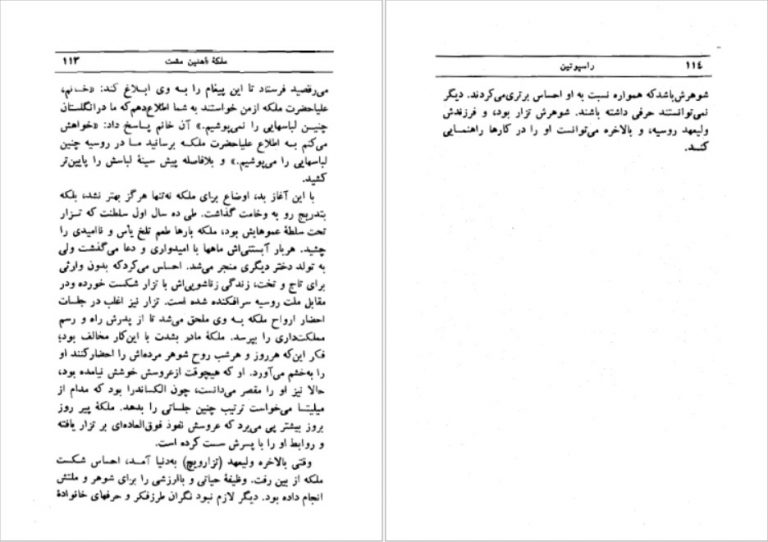 ملکهٔ آهنین مشت ۱۱۳
می‌رقصید فرستاد تا این پیغام را به وی ابلاغ کند: «خانم،
علیاحضرت ملکه ازمن خواستند به شما اطلاع‌دهم‌که ما درانگلستان
چنین لباسهایی را نمی‌پوشیم.» آن خانم پاسخ داد: «خواهش
می‌کنم به اطلاع علیاحضرت ملکه برسانید ما در روسیه چنین
لباسهایی را می‌پوشیم.» و بلافاصله پیش سینهٔ لباسش را پایین‌تر
کشید.
با این آغاز بد، اوضاع برای ملکه نه‌تنها هرگز بهتر نشد، بلکه
بتدریج رو به وخامت گذاشت. طی ده سال اول سلطنت که تزار
تحت سلطهٔ عموهایش بود، ملکه بارها طعم تلخ یأس و ناامیدی را
چشید. هربار آبستنی‌اش ماهها با امیدواری و دعا می‌گذشت ولی
به تولد دختر دیگری منجر می‌شد. احساس می‌کردکه بدون وارثی
برای تاج و تخت، زندگی زناشویی‌اش با تزار شکست خورده ودر
مقابل ملت روسیه سرافکنده شده است. تزار نیز اغلب در جلسات
احضار ارواح ملکه به وی ملحق می‌شد تا از پدرش راه و رسم
مملکت‌داری را بپرسد. ملکهٔ مادر بشدت با این‌کار مخالف بود؛
فکر این‌که هرروز و هرشب روح شوهر مرده‌اش را احضارکنند او
را به‌خشم می‌آورد. او که هیچوقت ازعروسش خوشش نیامده بود،
حالا نیز او را مقصر می‌دانست، چون الکساندرا بود که مدام از
میلیتسا می‌خواست ترتیب چنین جلساتی را بدهد. ملکهٔ پیر روز
بروز بیشتر پی می‌برد که عروسش نفوذ فوق‌العاده‌ای بر تزار یافته
و روابط او را با پسرش سست کرده است.
وقتی بالاخره ولیعهد (تزارویچ) به‌دنیا آمد، احساس شکست
ملکه از بین رفت. وظیفهٔ حیاتی و باارزشی را برای شوهر و ملتش
انجام داده بود. دیگر لازم نبود نگران طرزفکر و حرفهای خانوادهٔ
۱۱۴ راسپوتین
شوهرش‌باشدکه همواره نسبت به او احساس برتری‌می‌کردند. دیگر
نمی‌توانستند حرفی داشته باشند. شوهرش تزار بود، و فرزندش
ولیعهد روسیه، و بالاخره می‌توانست او را در کارها راهنمایی
کند.